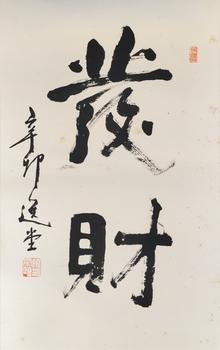 發財
辛卯選堂